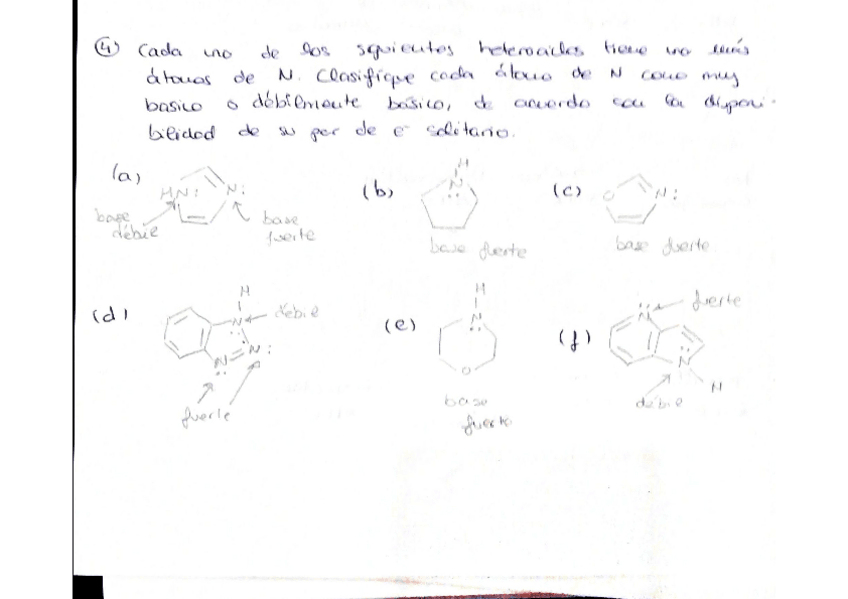 ④ Cada uno de los siguientes heterociclos tiene uno más
átomos de N. Clasifique cada átomo de N como muy
basico o débilmente basico, de acuerdo con la disponi-
bilidad de su par de e⁻ solitario.
(a)
HN:
N:
base
débil
base
fuerte
(b)
H
N
base fuerte
(c)
O
N:
base fuerte
(d)
H
N
débil
N:
N
fuerte
(e)
H
N
O
base
fuerte
(f)
N
fuerte
N
H
débil